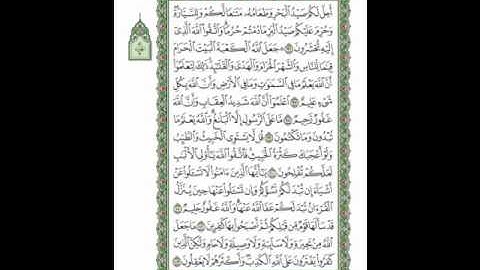 أُحِلَّ لَكُمْ صَيْدُ ٱلْبَحْرِ وَطَعَامُهُۥ مَتَٰعًا لَّكُمْ وَلِلسَّيَّارَةِ
وَحُرِّمَ عَلَيْكُمْ صَيْدُ ٱلْبَرِّ مَا دُمْتُمْ حُرُمًا وَٱتَّقُوا۟ ٱللَّهَ ٱلَّذِىٓ
إِلَيْهِ تُحْشَرُونَ جَعَلَ ٱللَّهُ ٱلْكَعْبَةَ ٱلْبَيْتَ ٱلْحَرَامَ
قِيَٰمًا لِّلنَّاسِ وَٱلشَّهْرَ ٱلْحَرَامَ وَٱلْهَدْىَ وَٱلْقَلَٰٓئِدَ ذَٰلِكَ لِتَعْلَمُوٓا۟
أَنَّ ٱللَّهَ يَعْلَمُ مَا فِى ٱلسَّمَٰوَٰتِ وَمَا فِى ٱلْأَرْضِ وَأَنَّ ٱللَّهَ بِكُلِّ
شَىْءٍ عَلِيمٌ ٱعْلَمُوٓا۟ أَنَّ ٱللَّهَ شَدِيدُ ٱلْعِقَابِ وَأَنَّ ٱللَّهَ
غَفُورٌ رَّحِيمٌ مَّا عَلَى ٱلرَّسُولِ إِلَّا ٱلْبَلَٰغُ وَٱللَّهُ يَعْلَمُ مَا
تُبْدُونَ وَمَا تَكْتُمُونَ قُل لَّا يَسْتَوِى ٱلْخَبِيثُ وَٱلطَّيِّبُ
وَلَوْ أَعْجَبَكَ كَثْرَةُ ٱلْخَبِيثِ فَٱتَّقُوا۟ ٱللَّهَ يَٰٓأُو۟لِى ٱلْأَلْبَٰبِ
لَعَلَّكُمْ تُفْلِحُونَ يَٰٓأَيُّهَا ٱلَّذِينَ ءَامَنُوا۟ لَا تَسْـَٔلُوا۟ عَنْ
أَشْيَآءَ إِن تُبْدَ لَكُمْ تَسُؤْكُمْ وَإِن تَسْـَٔلُوا۟ عَنْهَا حِينَ يُنَزَّلُ
ٱلْقُرْءَانُ تُبْدَ لَكُمْ عَفَا ٱللَّهُ عَنْهَا وَٱللَّهُ غَفُورٌ حَلِيمٌ
قَدْ سَأَلَهَا قَوْمٌ مِّن قَبْلِكُمْ ثُمَّ أَصْبَحُوا۟ بِهَا كَٰفِرِينَ مَا جَعَلَ
ٱللَّهُ مِنۢ بَحِيرَةٍ وَلَا سَآئِبَةٍ وَلَا وَصِيلَةٍ وَلَا حَامٍ وَلَٰكِنَّ ٱلَّذِينَ
كَفَرُوا۟ يَفْتَرُونَ عَلَى ٱللَّهِ ٱلْكَذِبَ وَأَكْثَرُهُمْ لَا يَعْقِلُونَ